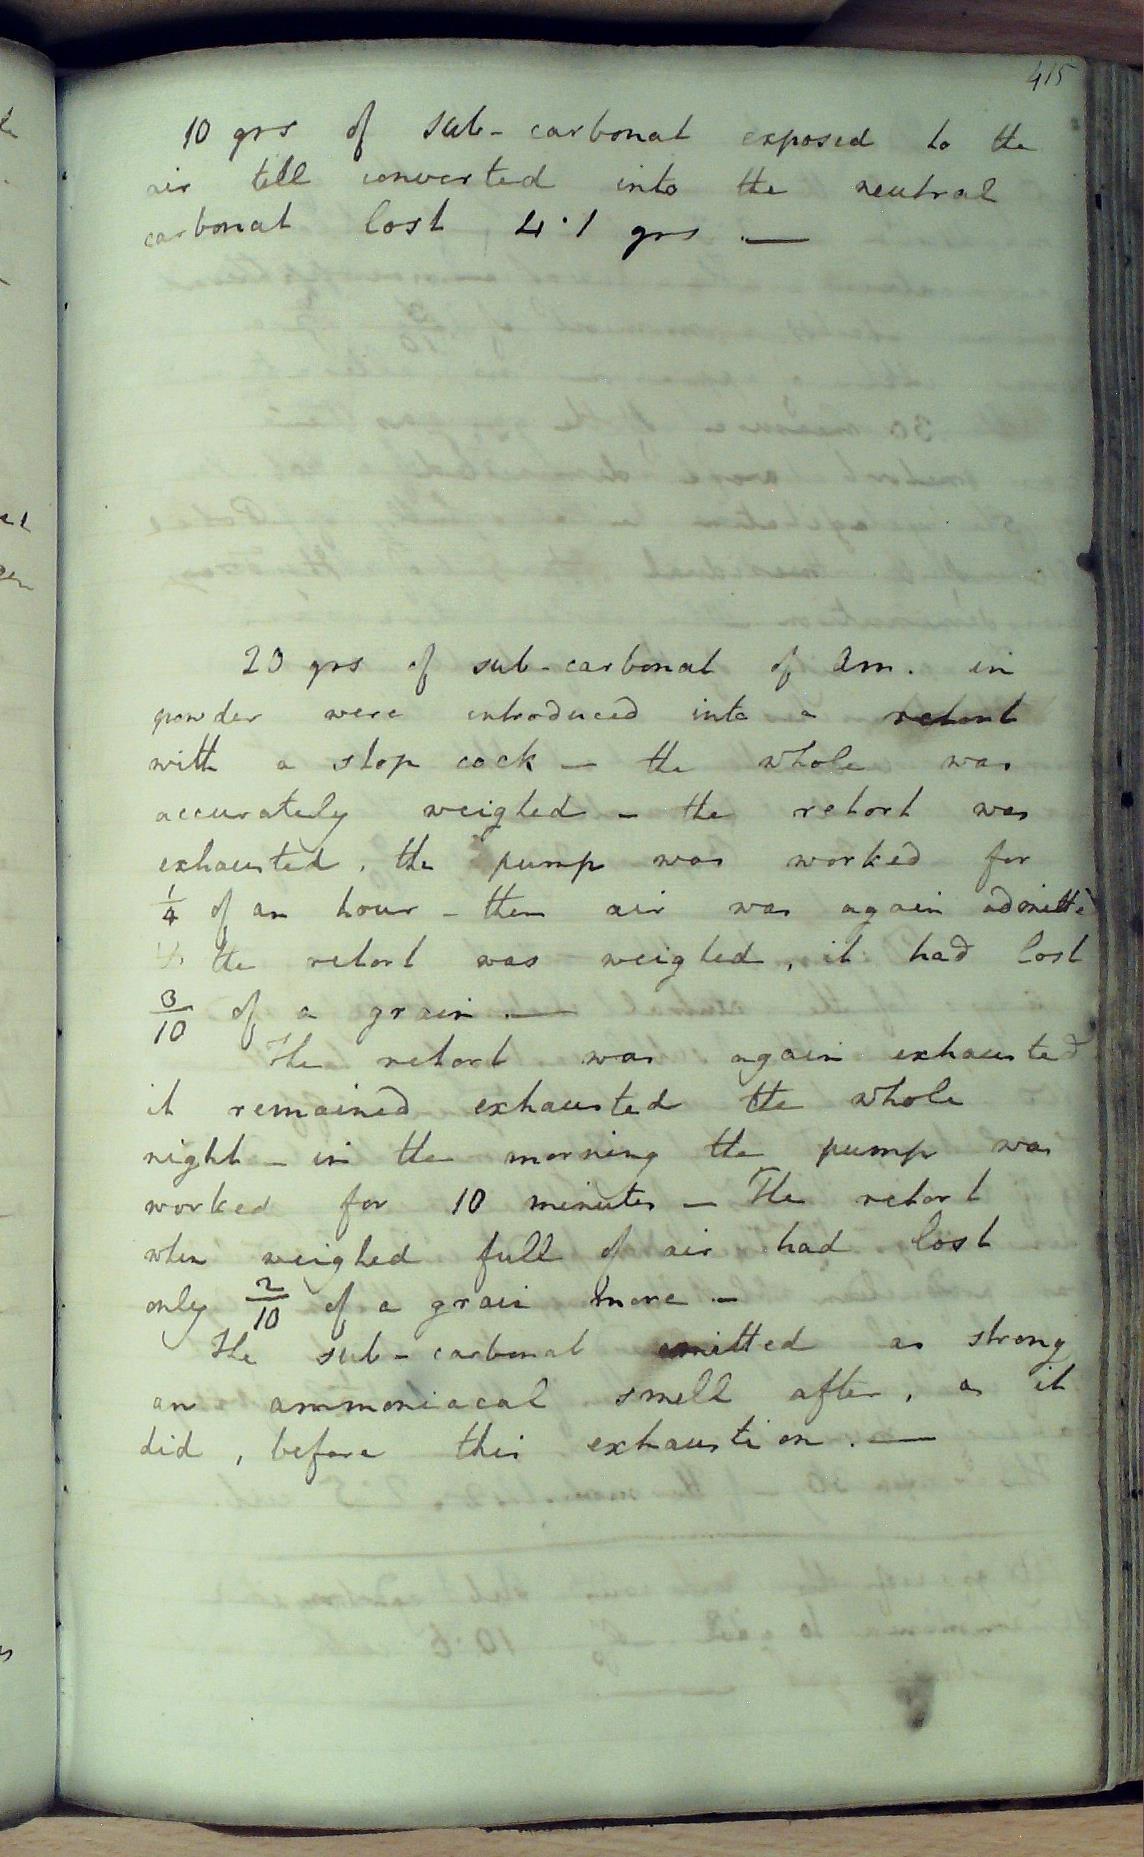 415
10 grs of sub-carbonat exposed to the
air till converted into the neutral
carbonat lost 4.1 grs. —
20 grs of sub-carbonat of Am. in
powder were introduced into a retort
with a stop cock — the whole was
accurately weighed — the retort was
exhausted, the pump was worked for
1/4 of an hour — then air was again admitted
& the retort was weighed, it had lost
3/10 of a grain. —
The retort was again exhausted
it remained exhausted the whole
night — in the morning the pump was
worked for 10 minutes — The retort
when weighed full of air had lost
only 2/10 of a grain more —
The sub-carbonat emitted as strong
an ammoniacal smell after, as it
did, before this exhaustion. —